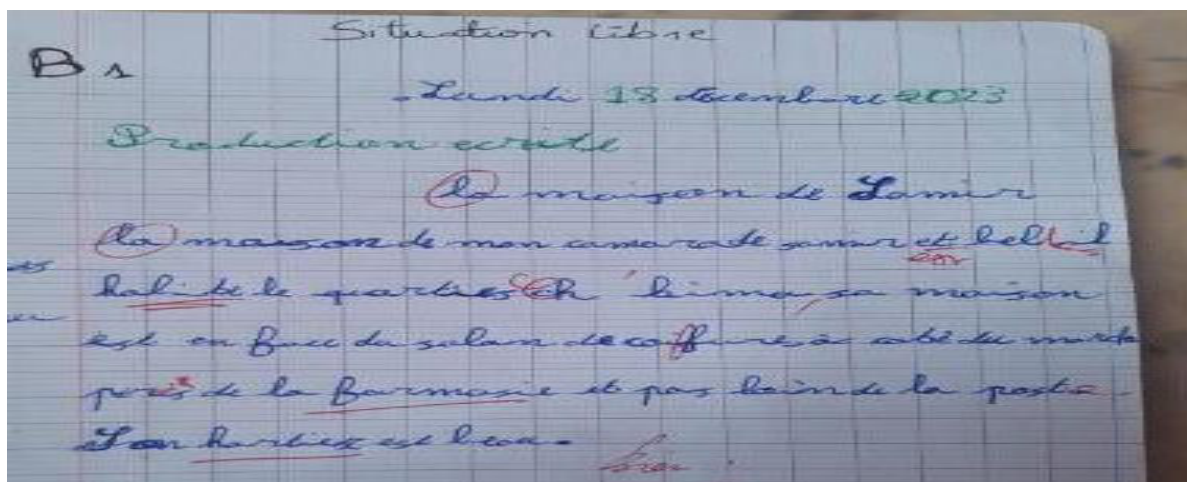 Situation Libre
B 1
Lundi 18 decembre 2023
Production ecrite
la maison de Samir
la maison de mon camarade samir et bel il
habite le quartier Ch bima, sa maison
est en face du salan de coffure à coté du
près de la farmasie et pas loin de la poste.
Son kartier est beau.